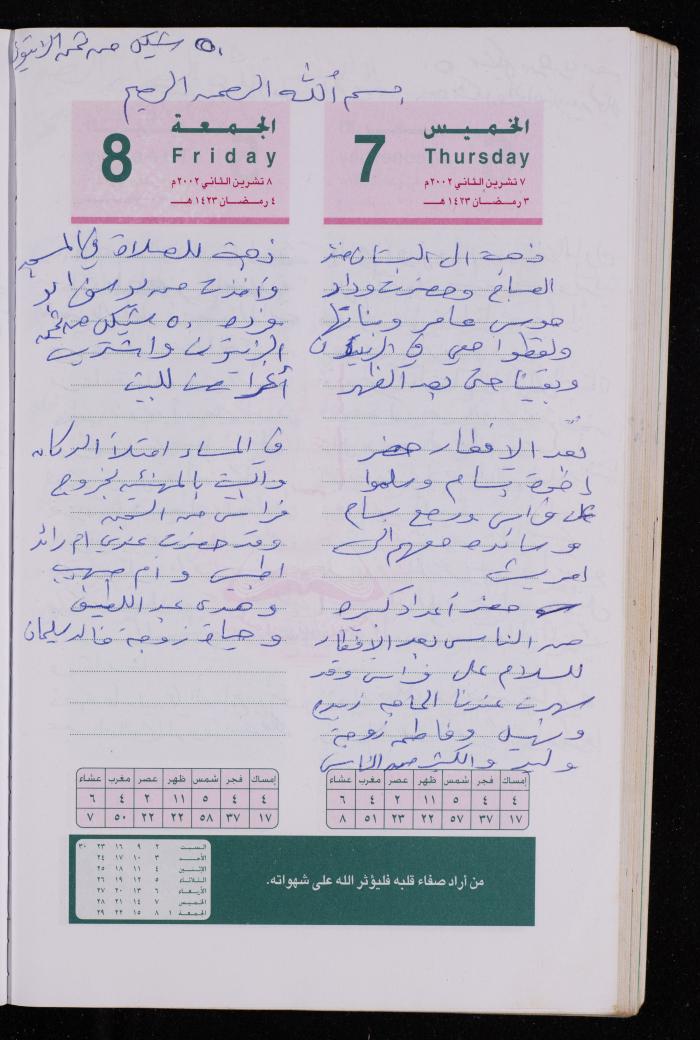 ٥٠ شيكل من ثمن الزيتون
بسم الله الرحمن الرحيم
الخميس
7
Thursday
٧ تشرين الثاني ٢٠٠٢م
٣ رمضان ١٤٢٣ هـ
ذهبت الى البستان منذ
الصباح وحضرت وداد
موسى عامر وبناتها
ولقطوا معي في الزيتون
وبقينا حتى بعد الظهر
بعد الإفطار حضر
إخوة بسام وسلموا
على فراس ورجع بسام
وسائده معهم الى
حضر أعداد كبيره
من الناس بعد الإفطار
للسلام على فراس وقد
سهرت عندنا الحاجه زبيده
وسهيل وفاطمه زوجة
وليد والكثير من الناس
إمساك فجر شمس ظهر عصر مغرب عشاء
٤ ٤ ٥ ١١ ٢ ٤ ٦
١٧ ٣٧ ٥٧ ٢٢ ٢٣ ٥١ ٨
الجمعة
8
Friday
٨ تشرين الثاني ٢٠٠٢م
٤ رمضان ١٤٢٣ هـ
ذهبت للصلاة في المسجد
وأخذت من يوسف ابو
٥٠ شيكل من ثمن
الزيتون واشتريت
أغراض للبيت
في المساء امتلأ الدكان
والبيت بالمهنئين بخروج
فراس من السجن
وقد حضرت عندي ام رائد
وام صهيب
وهدى عبد اللطيف
وحياة زوجة خالد سليمان
إمساك فجر شمس ظهر عصر مغرب عشاء
٤ ٤ ٥ ١١ ٢ ٤ ٦
١٧ ٣٧ ٥٨ ٢٢ ٢٢ ٥٠ ٧
من أراد صفاء قلبه فليؤثر الله على شهواته.
السبت ٢ ٩ ١٦ ٢٣ ٣٠
الأحد ٣ ١٠ ١٧ ٢٤
الإثنين ٤ ١١ ١٨ ٢٥
الثلاثاء ٥ ١٢ ١٩ ٢٦
الأربعاء ٦ ١٣ ٢٠ ٢٧
الخميس ٧ ١٤ ٢١ ٢٨
الجمعة ١ ٨ ١٥ ٢٢ ٢٩